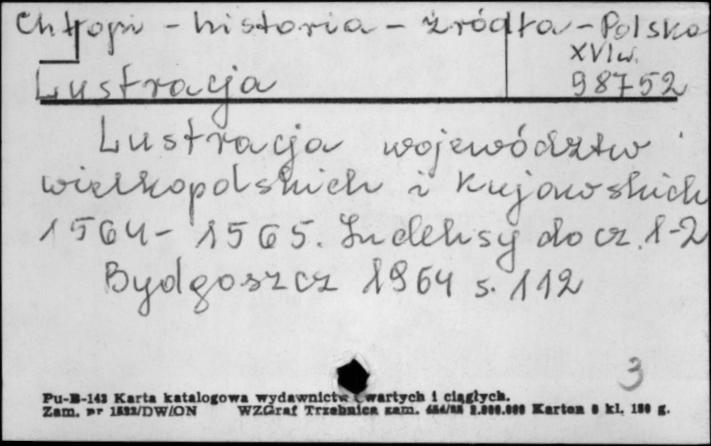 Chłopi - historia - źródła - Polska
XVI w.
Lustracja 98752
Lustracja województw
wielkopolskich i kujawskich
1564 - 1565. Indeksy do cz. 1-2
Bydgoszcz 1964 s. 112
3
Pu-B-143 Karta katalogowa wydawnictw zwartych i ciągłych.
Zam. nr 1532/DW/ON WZGraf Trzebnica zam. 2.000.000 Karton 0 kl. 180 g.